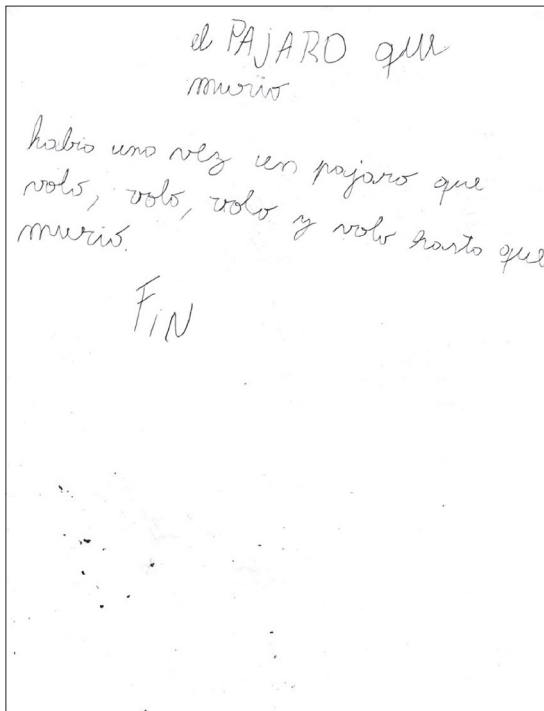 el PAJARO que
murio
habia una vez un pajaro que
voló, voló, volo y volo hasta que
murió.
FiN